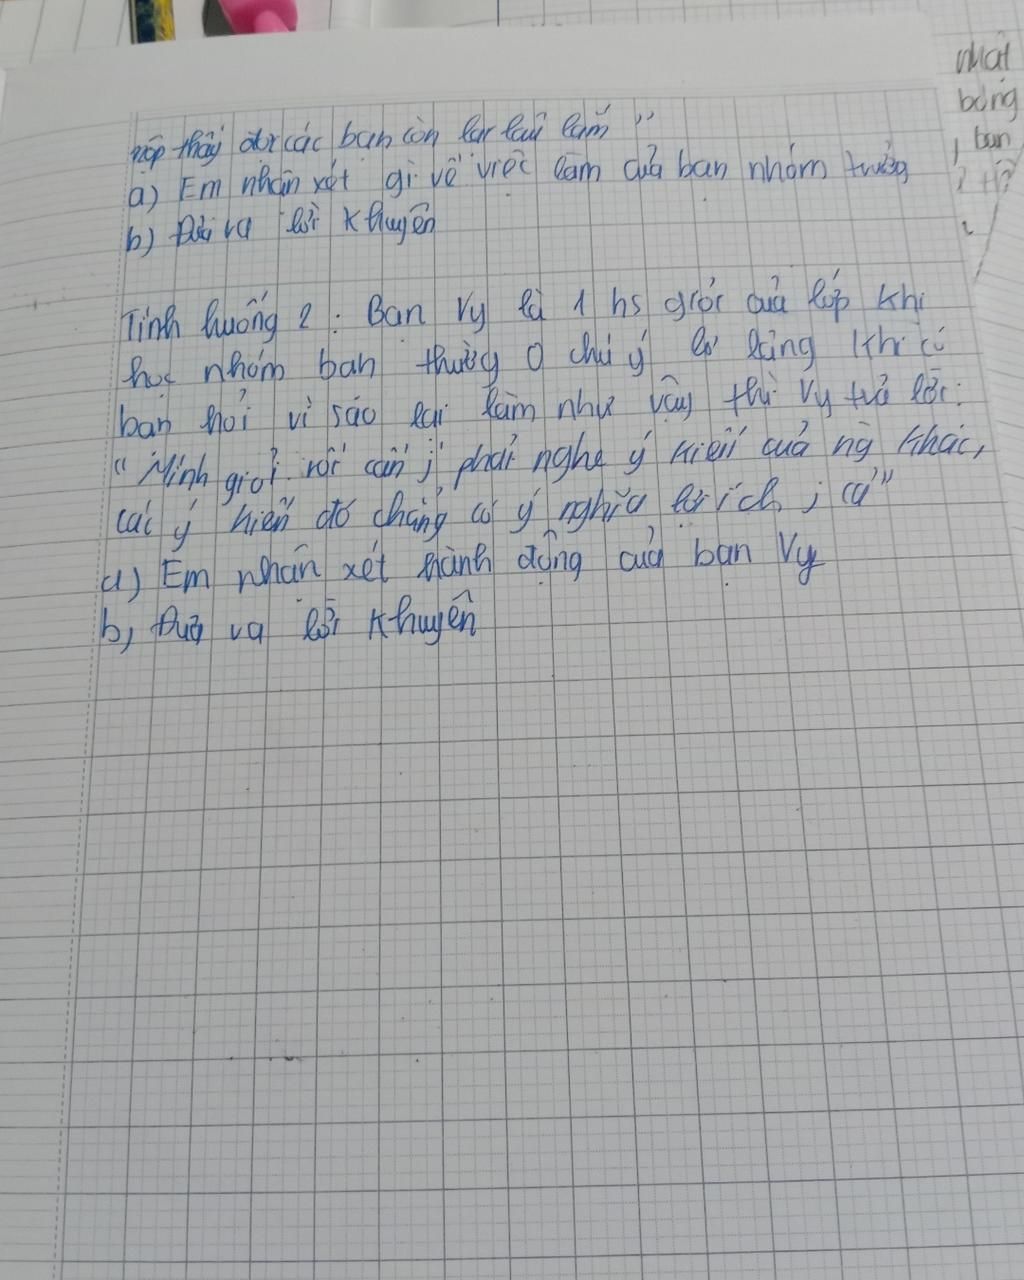 nộp thầy đợi các bạn còn lâu lắm"
a) Em nhận xét gì về việc làm của bạn nhóm trưởng
b) Đưa ra lời khuyên
Tình huống 2: Bạn Vy là 1 hs giỏi của lớp khi
học nhóm bạn thường 0 chú ý lơ lãng khi có
bạn hỏi vì sao lại làm như vậy thì Vy trả lời:
"Mình giỏi rồi cần j phải nghe ý kiến của ng khác,
các ý kiến đó chẳng có ý nghĩa lợi ích j cả"
a) Em nhận xét hành động của bạn Vy
b, Đưa ra lời khuyên
nhất
bóng
bạn